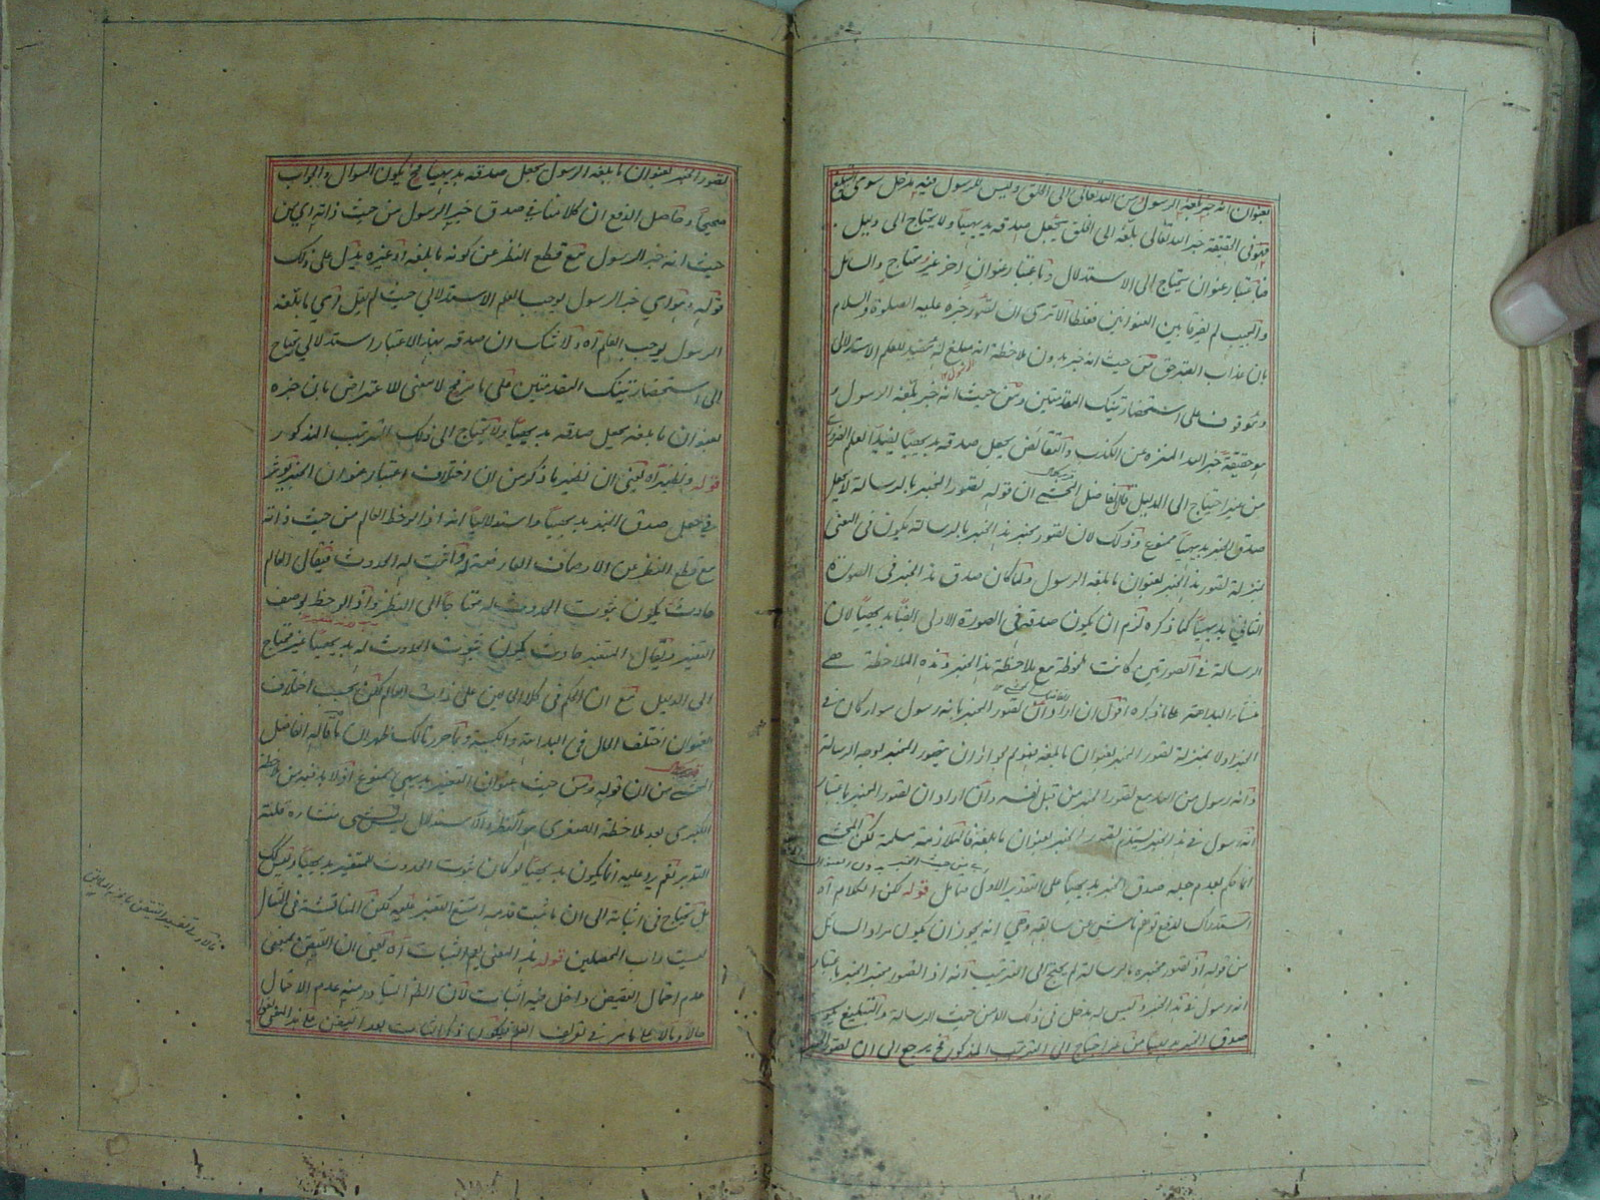 بعنوان انه خبر بلغه الرسول من الله تعالى الى الخلق وليس للرسول فيه مدخل سوى التبليغ
فهو فى الحقيقة خبر الله تعالى بلغه الى الخلق يجعل صدقه بديهيا ولا يحتاج الى دليل
فباعتبار عنوان يحتاج الى الاستدلال وباعتبار عنوان اخر غير محتاج والسائل
والمجيب لم يفرقا بين العنوانين فغلطا الا ترى ان تصور خبره عليه الصلوة والسلام
بان عذاب القبر حق من حيث انه خبر بدون ملاحظة انه مبلغ له مفيد للعلم الاستدلالى
وموقوف على استحضار تينك المقدمتين ومن حيث انه خبر بلغه الرسول و
هو حقيقة خبر الله المنزه عن الكذب والنقائص يجعل صدقه بديهيا يفيد العلم الضرورى
من غير احتياج الى الدليل قال الفاضل المحشى ان قوله تصور الخبر بالرسالة لا يجعل
صدق الخبر بديهيا ممنوع وذلك لان تصور مخبر هذا الخبر بالرسالة يكون فى المعنى
بمنزلة تصور هذا الخبر بعنوان ما بلغه الرسول ولما كان صدق هذا الخبر فى الصورة
الثانى بديهيا كما ذكره لزم ان يكون صدقه فى الصورة الاولى ايضا بديهيا لان
الرسالة فى الصورتين كانت ملحوظة مع ملاحظة هذا الخبر وهذه الملاحظة هى
منشأ البداهة على ما ذكره اقول ان اراد ان تصور المخبر بانه رسول سواء كان فى
الخبر اولا بمنزلة تصور الخبر بعنوان ما بلغه فممنوع لجواز ان يتصور المخبر بوجه الرسالة
وانه رسول من الله مع تصور الخبر من قبل نفسه وان اراد ان تصور المخبر باعتبار
انه رسول فى هذا الخبر يستلزم تصور الخبر بعنوان ما بلغه فالملازمة مسلمة لكن المحشى
انما حكم بعدم جعله صدق الخبر بديهيا على التقدير الاول فتامل قوله لكن الكلام آه
استدراك لدفع توهم ناش عن سابقه وهى انه يجوز ان يكون مراد السائل
من قوله اذ تصور مخبره بالرسالة لم يحتج الى الترتيب انه اذا تصور مخبر الخبر باعتبار
انه رسول فى هذا الخبر وليس له مدخل فى ذلك الا من حيث الرسالة والتبليغ يكون
صدق الخبر بديهيا من غير احتياج الى الترتيب المذكور فح يرجع الى ان تصور الخبر
تصور الخبر بعنوان ما بلغه الرسول يجعل صدقه بديهيا فح يكون السوال والجواب
صحيحا وحاصل الدفع ان كلامنا فى صدق خبر الرسول من حيث ذاته اى من
حيث انه خبر الرسول مع قطع النظر عن كونه ما بلغه او غيره يدل على ذلك
قوله وهو اى خبر الرسول يوجب العلم الاستدلالى حيث لم يقل اى ما بلغه
الرسول يوجب العلم آه ولا شك ان صدقه بهذا الاعتبار استدلالى يحتاج
الى استحضار تينك المقدمتين على ما مر فح لا معنى للاعتراض بان خبره
بعنوان ما بلغه يجعل صدقه بديهيا ولا يحتاج الى ذلك الترتيب المذكور
قوله ونظيره آه يعنى ان نظير ما ذكر من ان اختلاف اعتبار عنوان الخبر يؤثر
فى جعل صدق الخبر بديهيا واستدلاليا انه اذا لوحظ العالم من حيث ذاته
مع قطع النظر عن الاوصاف العارضة له واثبت له الحدوث فيقال العالم
حادث يكون ثبوت الحدوث له محتاجا الى النظر واذا لوحظ بوصف
التغير ويقال المتغير حادث يكون ثبوت الحدوث له بديهيا غير محتاج
الى الدليل مع ان الحكم فى كلا الحالين على ذات العالم لكن بحسب اختلاف
العنوان اختلف الحال فى البداهة والكسبية وبما حررنا لك ظهر ان ما قاله الفاضل
المحشى من ان قوله ومن حيث عنوان التغير بديهى ممنوع اذ لا بد فيه من ملاحظة
الكبرى بعد ملاحظة الصغرى هو النظر والاستدلال ليس بشى منشأه قلة
التدبر نعم يرد عليه انما يكون بديهيا لو كان ثبوت الحدوث للمتغير بديهيا وليس كذلك
بل يحتاج فى اثباته الى ان ما ثبت قدمه امتنع التغير عليه لكن المناقشة فى المثال
ليست داب المحصلين قوله هذا المعنى يعم الثبات آه يعنى ان التيقن بمعنى
عدم احتمال النقيض داخل فيه الثبات لان الظاهر المتبادر منه عدم الاحتمال
حالا ومالا على ما مر فى تعريف العلم فيكون ذكر الثبات بعد التيقن على هذا المعنى